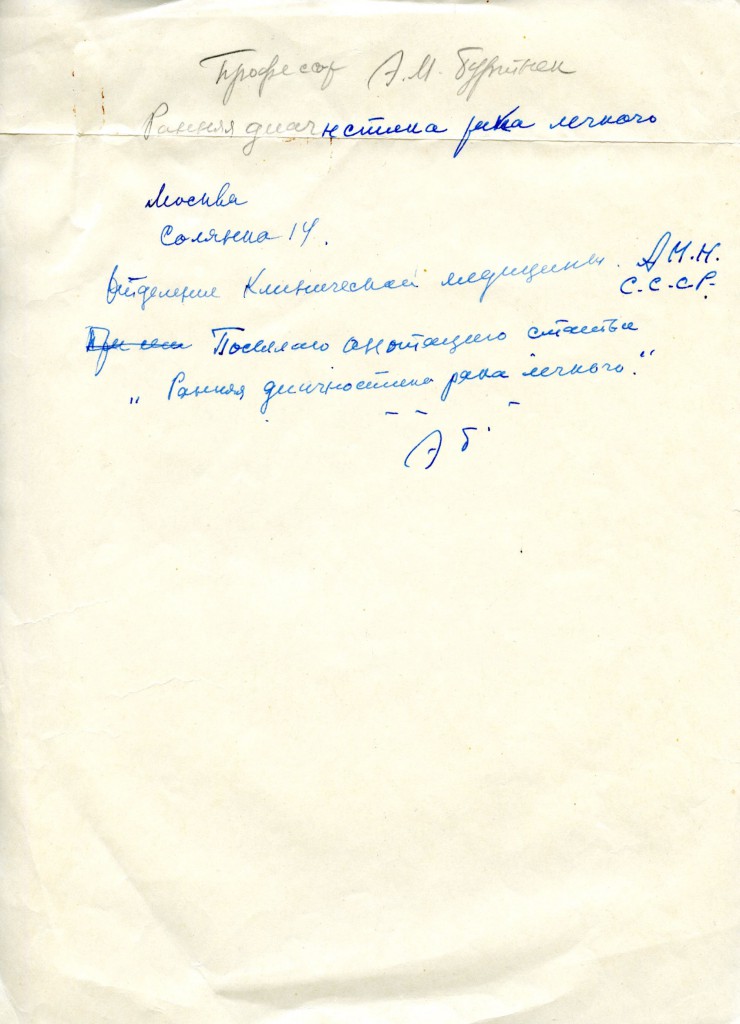 Професор Э.М. Буртнек
Ранняя диагнестика рака легкого
Москва
Солянка 14.
Отделение Клинической медицины. А.М.Н.
С.С.С.Р.
Посылаю анотацию статьи
„Ранняя диагностика рака легкого."
Э Б.